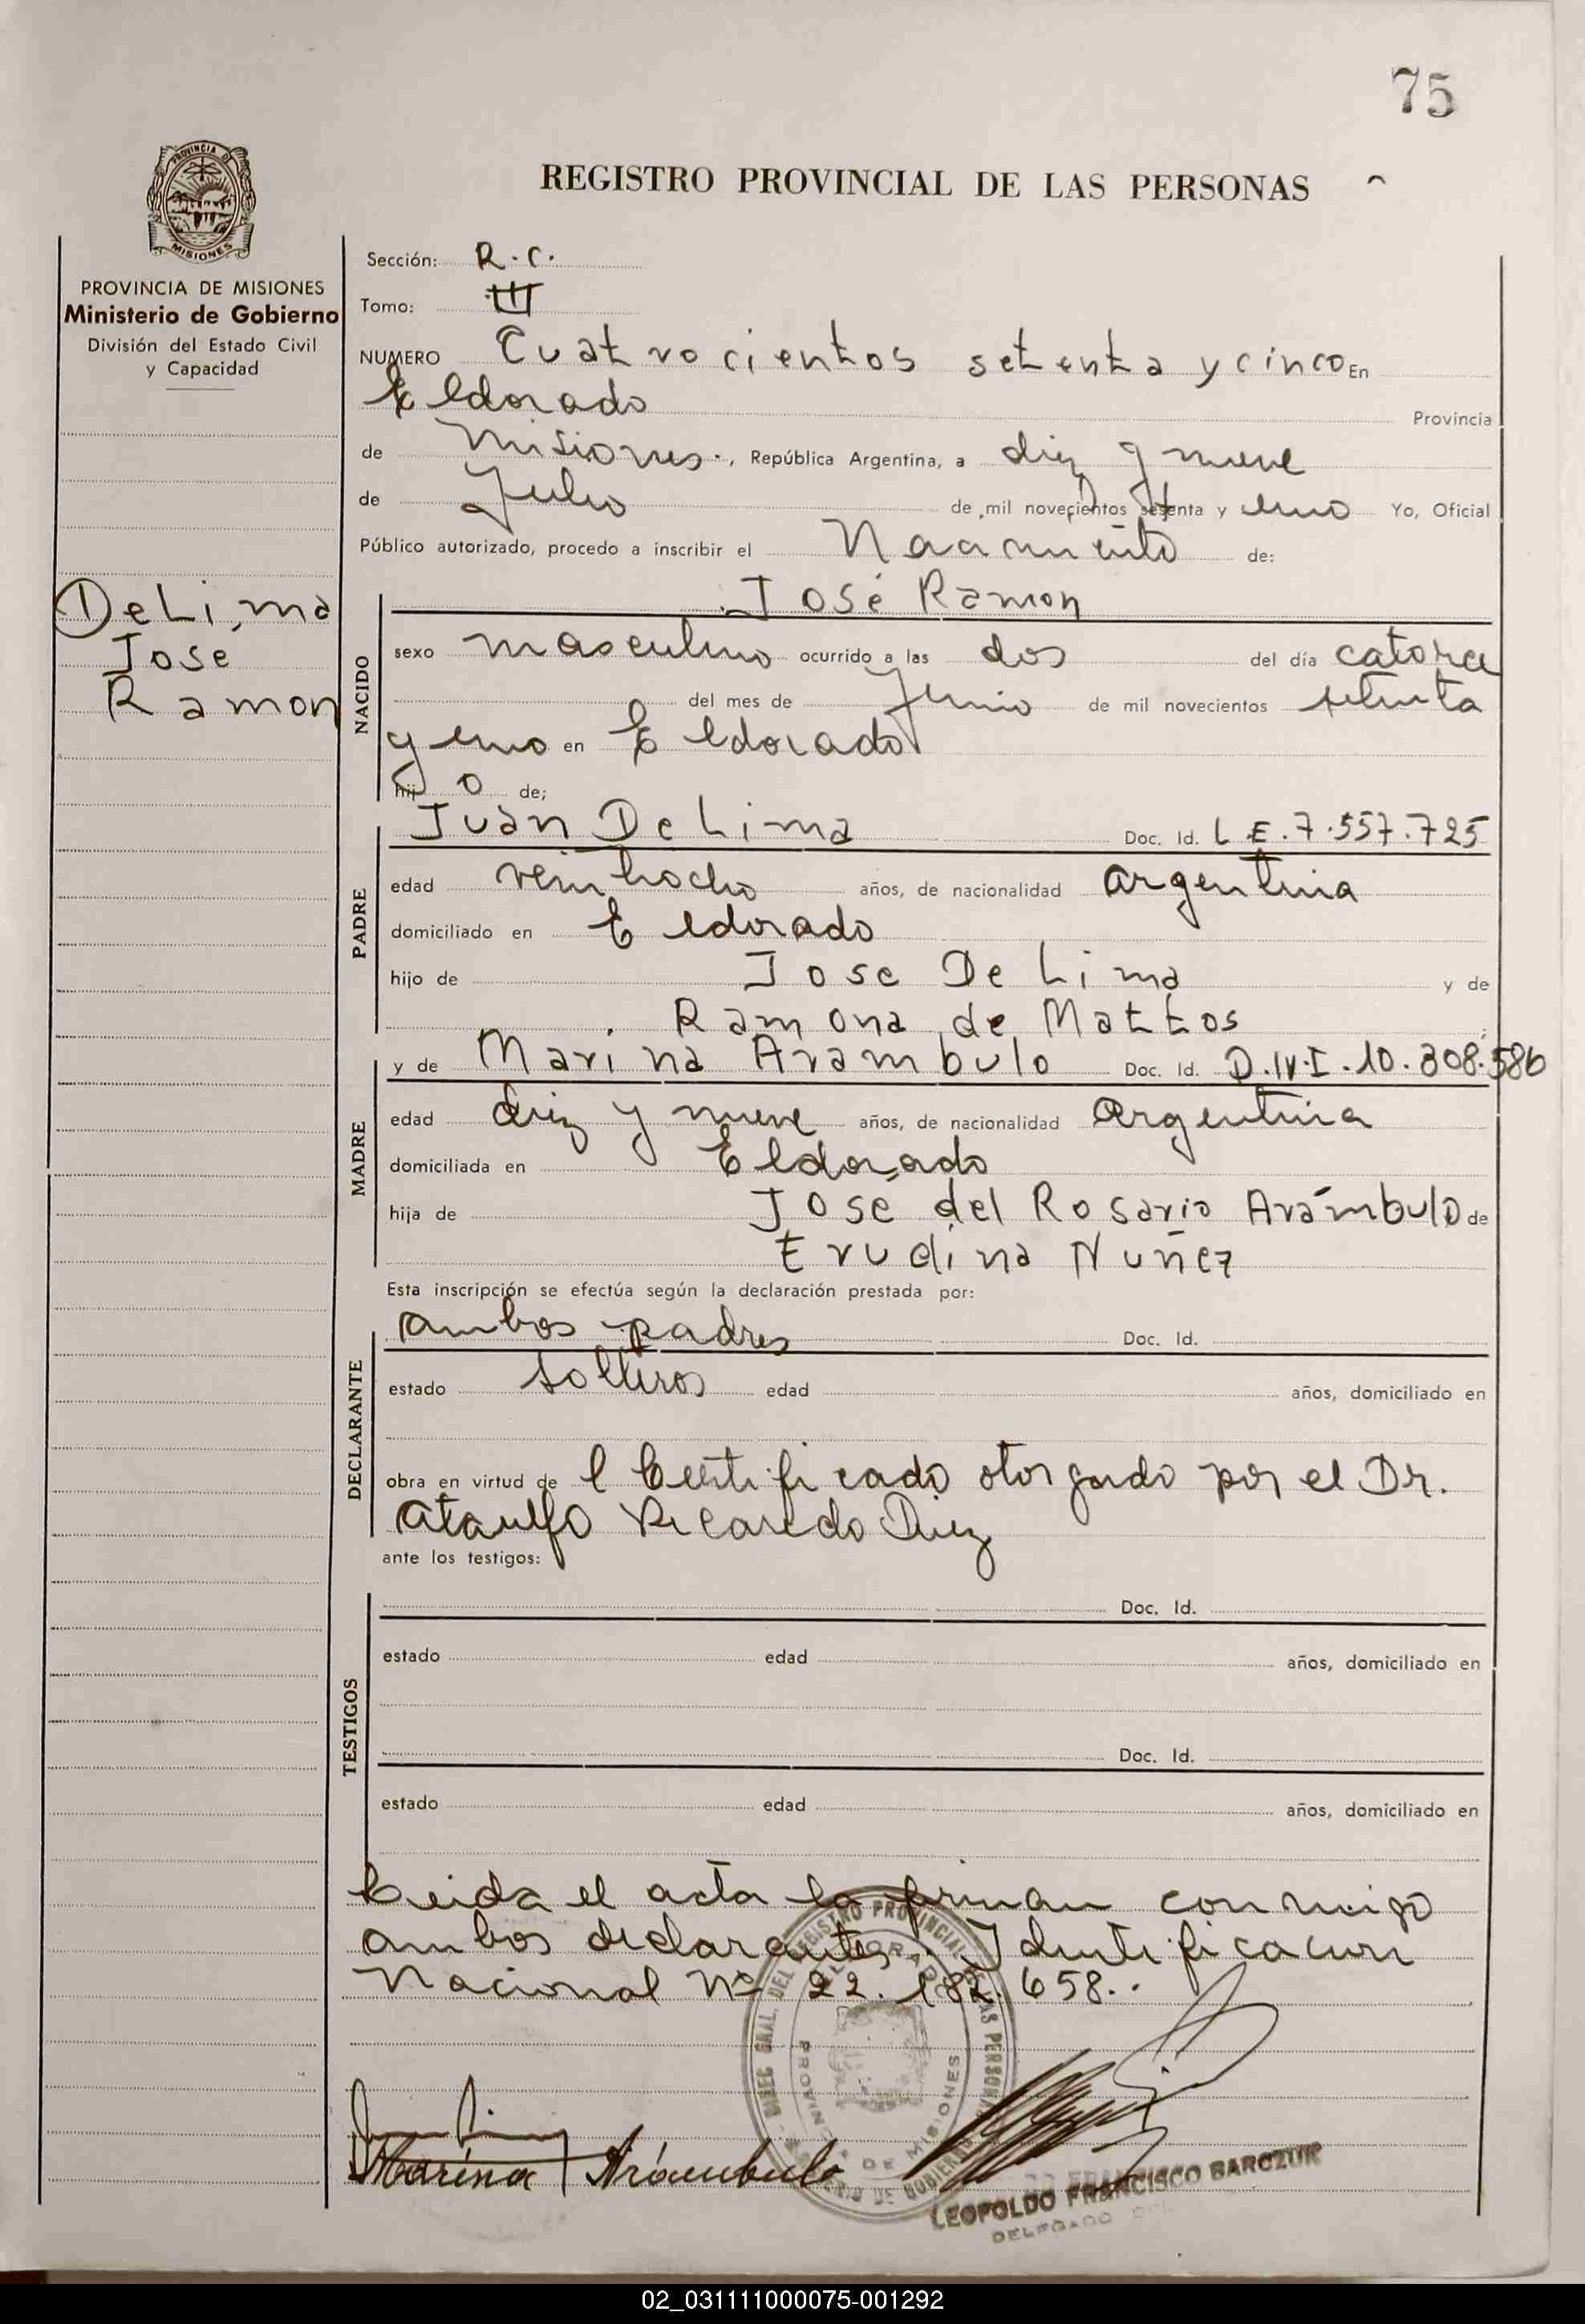 75
REGISTRO PROVINCIAL DE LAS PERSONAS
PROVINCIA DE MISIONES
Ministerio de Gobierno
División del Estado Civil
y Capacidad
De Lima
José
Ramon
Sección: R.C.
Tomo: III
NUMERO Cuatrocientos setenta y cinco En
Eldorado Provincia
de Misiones, República Argentina, a diez y nueve
de Julio de mil novecientos setenta y uno Yo, Oficial
Público autorizado, procedo a inscribir el Nacimiento de:
NACIDO
José Ramon
sexo masculino ocurrido a las dos del día catorce
del mes de Junio de mil novecientos setenta
y uno en Eldorado
hijo de;
PADRE
Juan De Lima Doc. Id. L.E. 7.557.725
edad veintiocho años, de nacionalidad argentina
domiciliado en Eldorado
hijo de Jose De Lima y de
Ramona de Mattos
MADRE
y de Marina Arambulo Doc. Id. D.N.I. 10.308.586
edad diez y nueve años, de nacionalidad argentina
domiciliada en Eldorado
hija de José del Rosario Arámbulo de
Erudina Nuñez
Esta inscripción se efectúa según la declaración prestada por:
DECLARANTE
ambos padres Doc. Id.
estado solteros edad años, domiciliado en
obra en virtud de l Certificado otorgado por el Dr.
Ataulfo Ricardo Diez
ante los testigos:
TESTIGOS
Doc. Id.
estado edad años, domiciliado en
Doc. Id.
estado edad años, domiciliado en
Leida el acta la firman conmigo
ambos declarantes. Identificacion
Nacional Nº 22.182.658.
Marina Arámbulo
LEOPOLDO FRANCISCO BARCZUK
DELEGADO
02_031111000075-001292